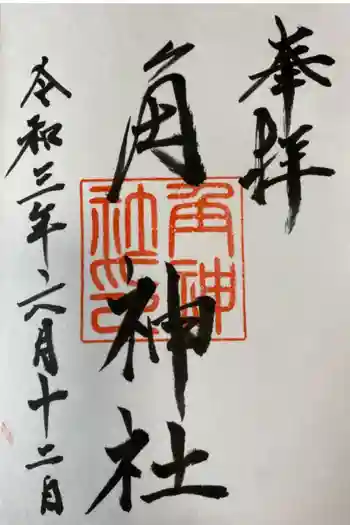 奉拝
角神社
角神社印
令和三年六月十二日